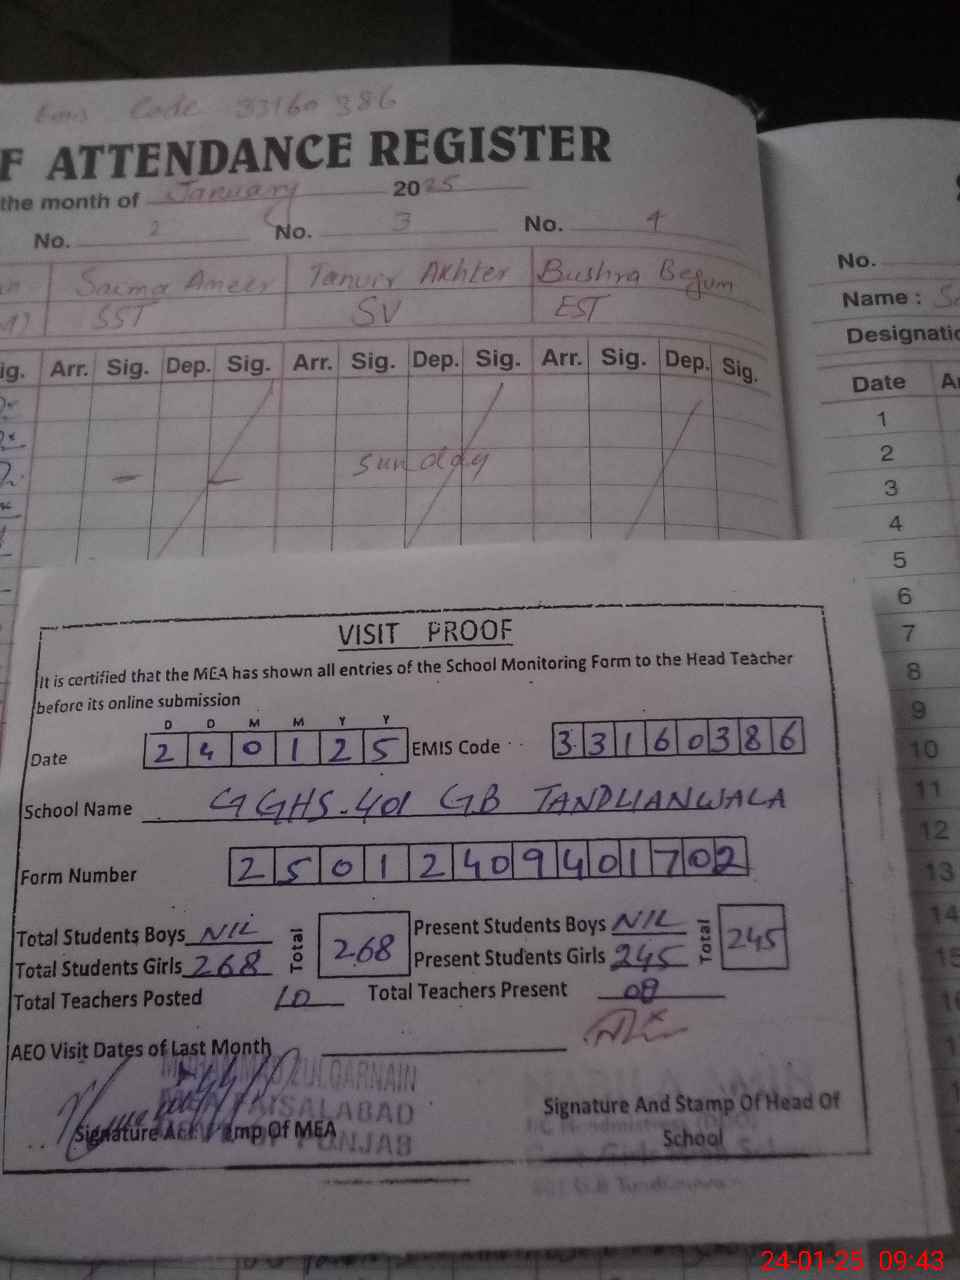 Emis Code 33160386
F ATTENDANCE REGISTER
the month of January 2025
No. 2 No. 3 No. 4
Saima Ameer Tanvir Akhter Bushra Begum
SST SV EST
ig. Arr. Sig. Dep. Sig. Arr. Sig. Dep. Sig. Arr. Sig. Dep. Sig.
Sunday
No.
Name :
Designatio
Date
1
2
3
4
5
6
7
8
9
10
11
12
13
14
VISIT PROOF
It is certified that the MEA has shown all entries of the School Monitoring Form to the Head Teacher
before its online submission
D D M M Y Y
Date 240125 EMIS Code 33160386
School Name GGHS-401 GB TANDLIANWALA
Form Number 25012409401702
Total Students Boys NIL Total 268 Present Students Boys NIL Total 245
Total Students Girls 268 Present Students Girls 245
Total Teachers Posted 10 Total Teachers Present 08
AEO Visit Dates of Last Month
ZULQARNAIN
FAISALABAD
PUNJAB
Signature And Stamp Of MEA
Signature And Stamp Of Head Of
School
24-01-25 09:43